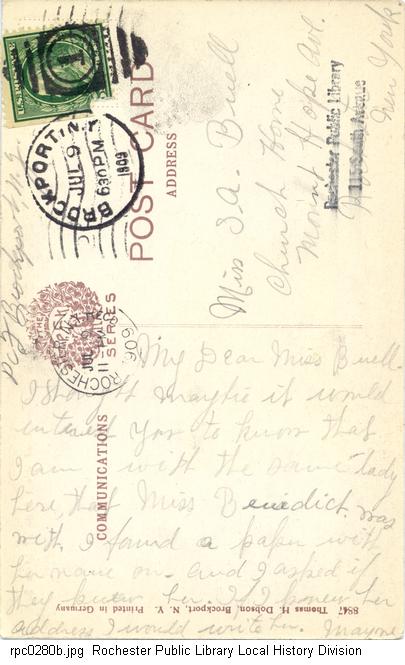 U.S. POSTAGE
1
BROCKPORT N.Y.
JUL 9
6 30 P M
1909
POST CARD
ADDRESS
Miss S A. Buell
Church Home
Mount Hope Ave.
New York
Rochester Public Library
115 South Avenue
Brockport N.Y.
SERIES
ROCHESTER
JUL 9
11 PM
1909
COMMUNICATIONS
My Dear Miss Buell.
I thought maybe it would
interest you to know that
I am with the same lady
here, that Miss Benedict was
with I found a paper with
her name on. and I asked if
they knew her. If I knew her
address I would write her. Mayme
8847 Thomas H. Dobson, Brockport, N. Y. Printed in Germany
rpc0280b.jpg Rochester Public Library Local History Division